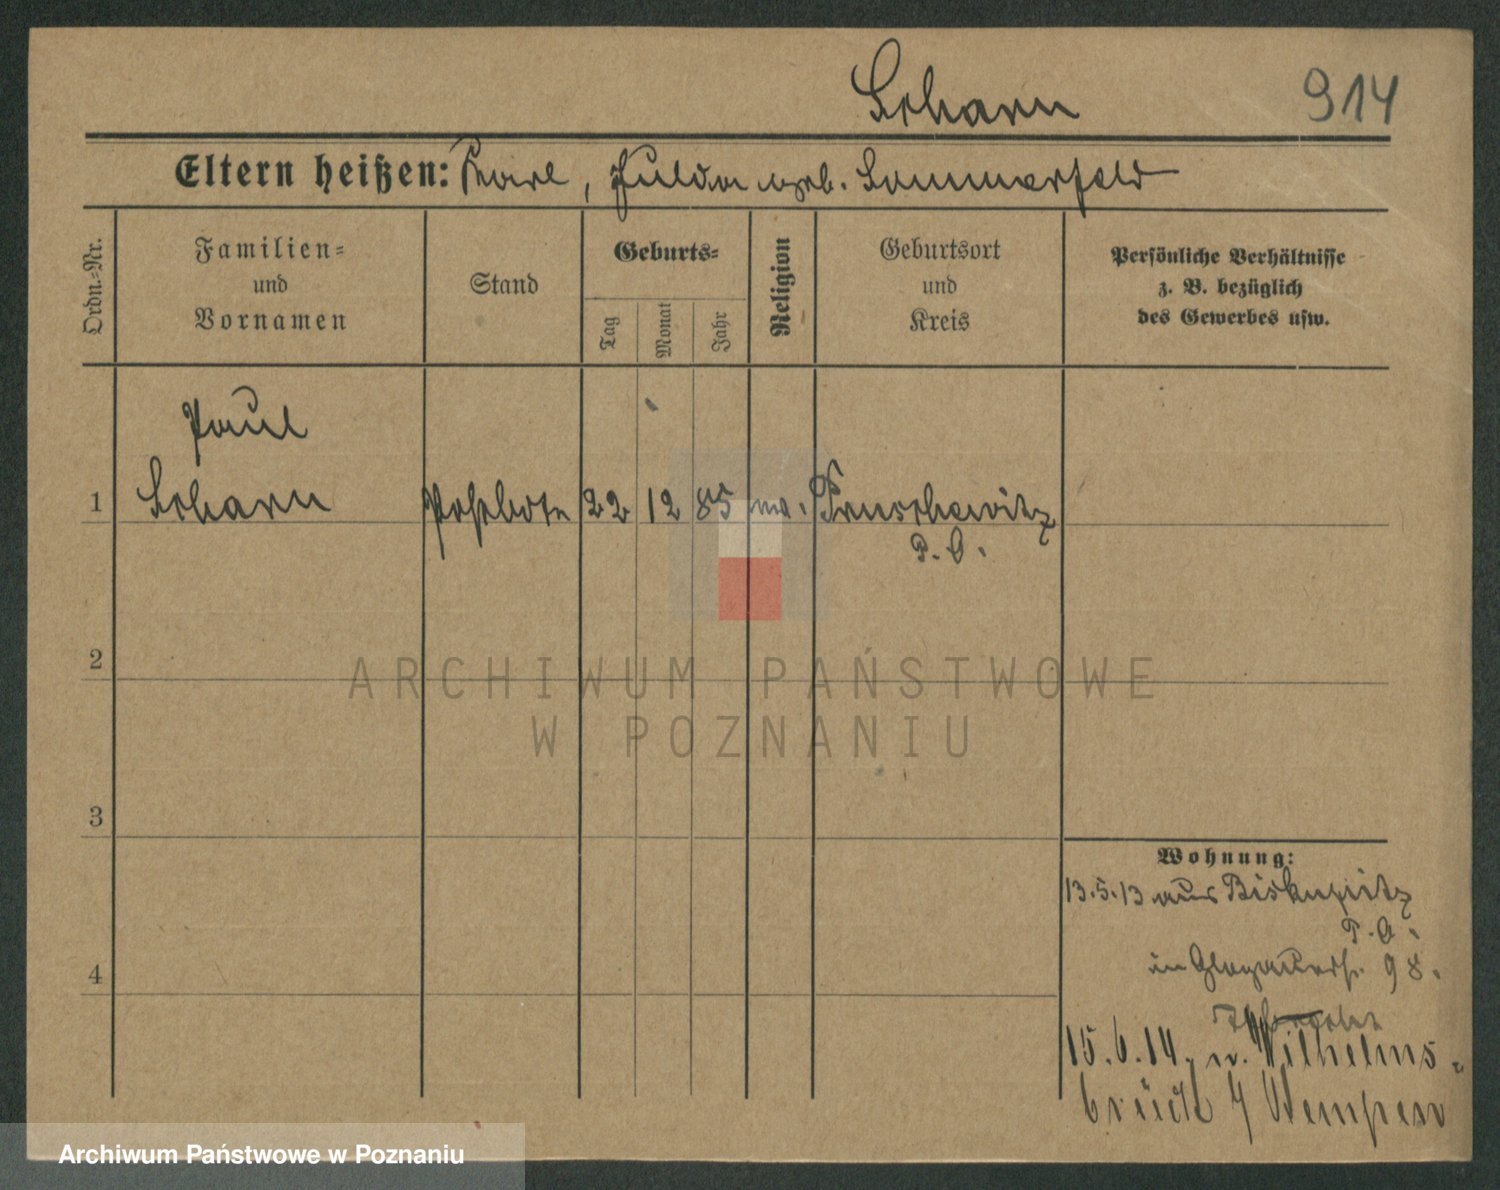 Scharn 914
Eltern heißen: Karl, Hulda geb. Sommerfeld
Ordn.=Nr.
Familien=
und
Vornamen
Stand
Geburts=
Tag
Monat
Jahr
Religion
Geburtsort
und
Kreis
Persönliche Verhältnisse
z. B. bezüglich
des Gewerbes usw.
Paul
1 Scharn Postbote 22 12 85 ev. Pruschewitz
P. O.
2
ARCHIWUM PAŃSTWOWE
W POZNANIU
3
Wohnung:
13.5.13 aus Biskupitz
P. O.
in Glogauerstr. 98.
4
15.6.14. n. Wilhelms-
brück / Kempen
Archiwum Państwowe w Poznaniu